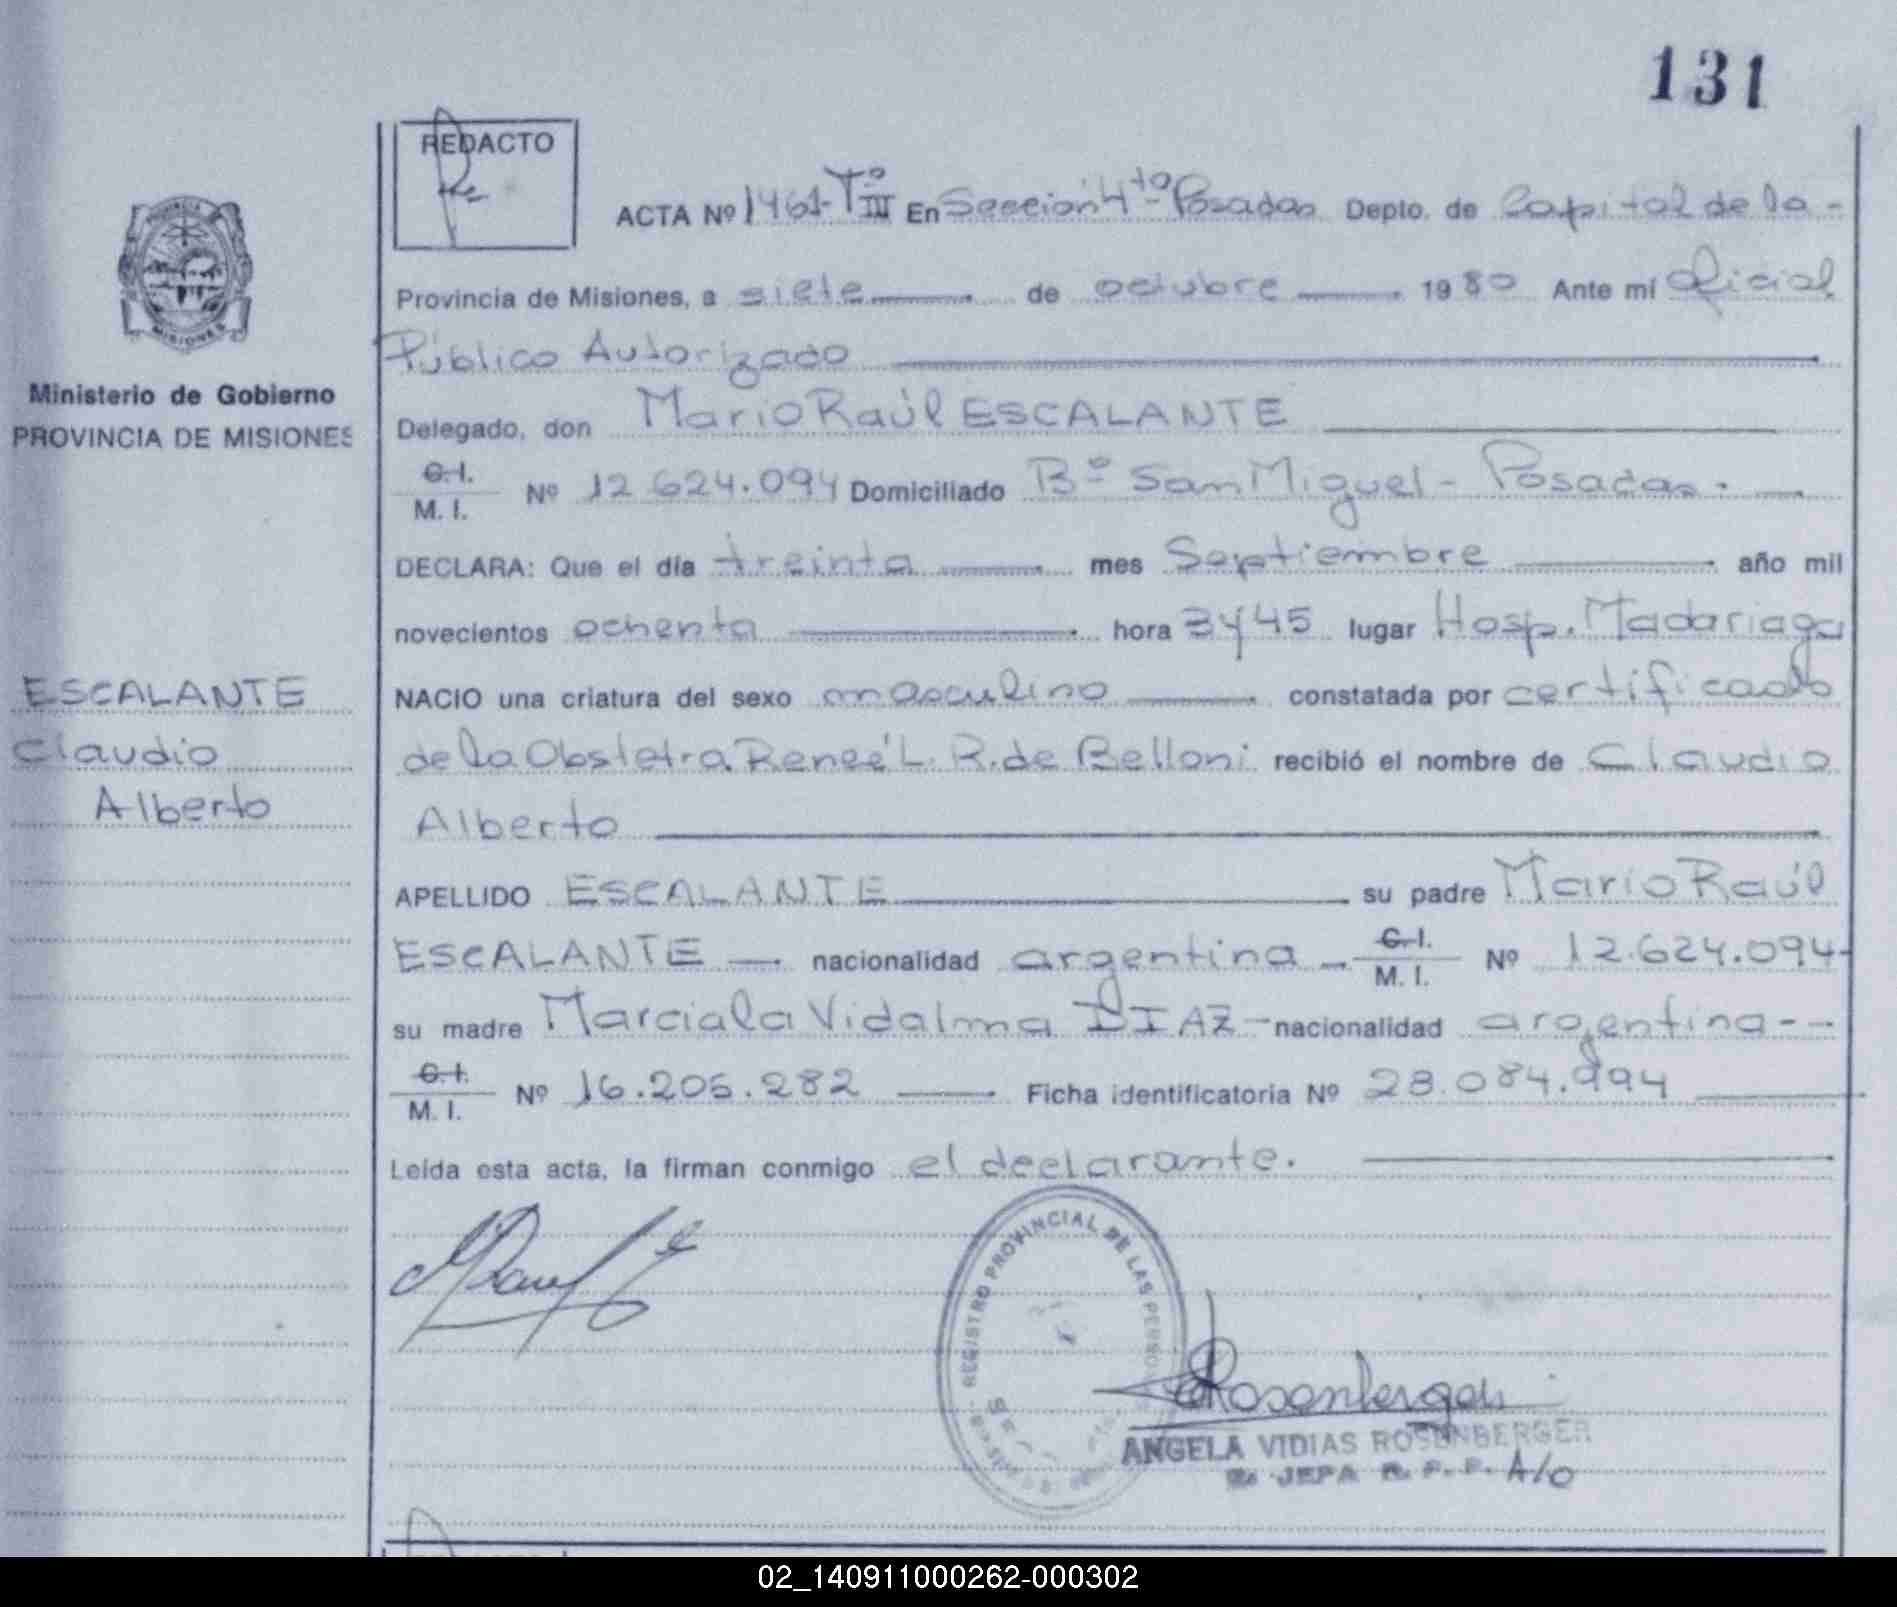 131
REDACTO
ACTA Nº 1461-Tº III En Sección 4to- Posadas Depto. de Capital de la -
Provincia de Misiones, a siete de octubre 1980 Ante mí Oficial
Público Autorizado
Delegado, don Mario Raúl ESCALANTE
C.I. / M. I. Nº 12.624.094 Domiciliado Bº San Miguel - Posadas.
DECLARA: Que el día treinta mes Septiembre año mil
novecientos ochenta hora 3 y 45 lugar Hosp. Madariaga
NACIO una criatura del sexo masculino constatada por certificado
de la Obstetra Reneé L. R. de Belloni recibió el nombre de Claudio
Alberto
APELLIDO ESCALANTE su padre Mario Raúl
ESCALANTE nacionalidad argentina C.I. / M. I. Nº 12.624.094-
su madre Marciala Vidalma DIAZ - nacionalidad argentina - -
C.I. / M. I. Nº 16.205.282 Ficha identificatoria Nº 28.084.994
Leída esta acta, la firman conmigo el declarante.
Ministerio de Gobierno
PROVINCIA DE MISIONES
ESCALANTE
Claudio
Alberto
PROVINCIA
MISIONES
REGISTRO PROVINCIAL DE LAS PERSONAS
Rosenberger
ANGELA VIDIAS ROSENBERGER
JEFA R. P. P. A/O
02_140911000262-000302